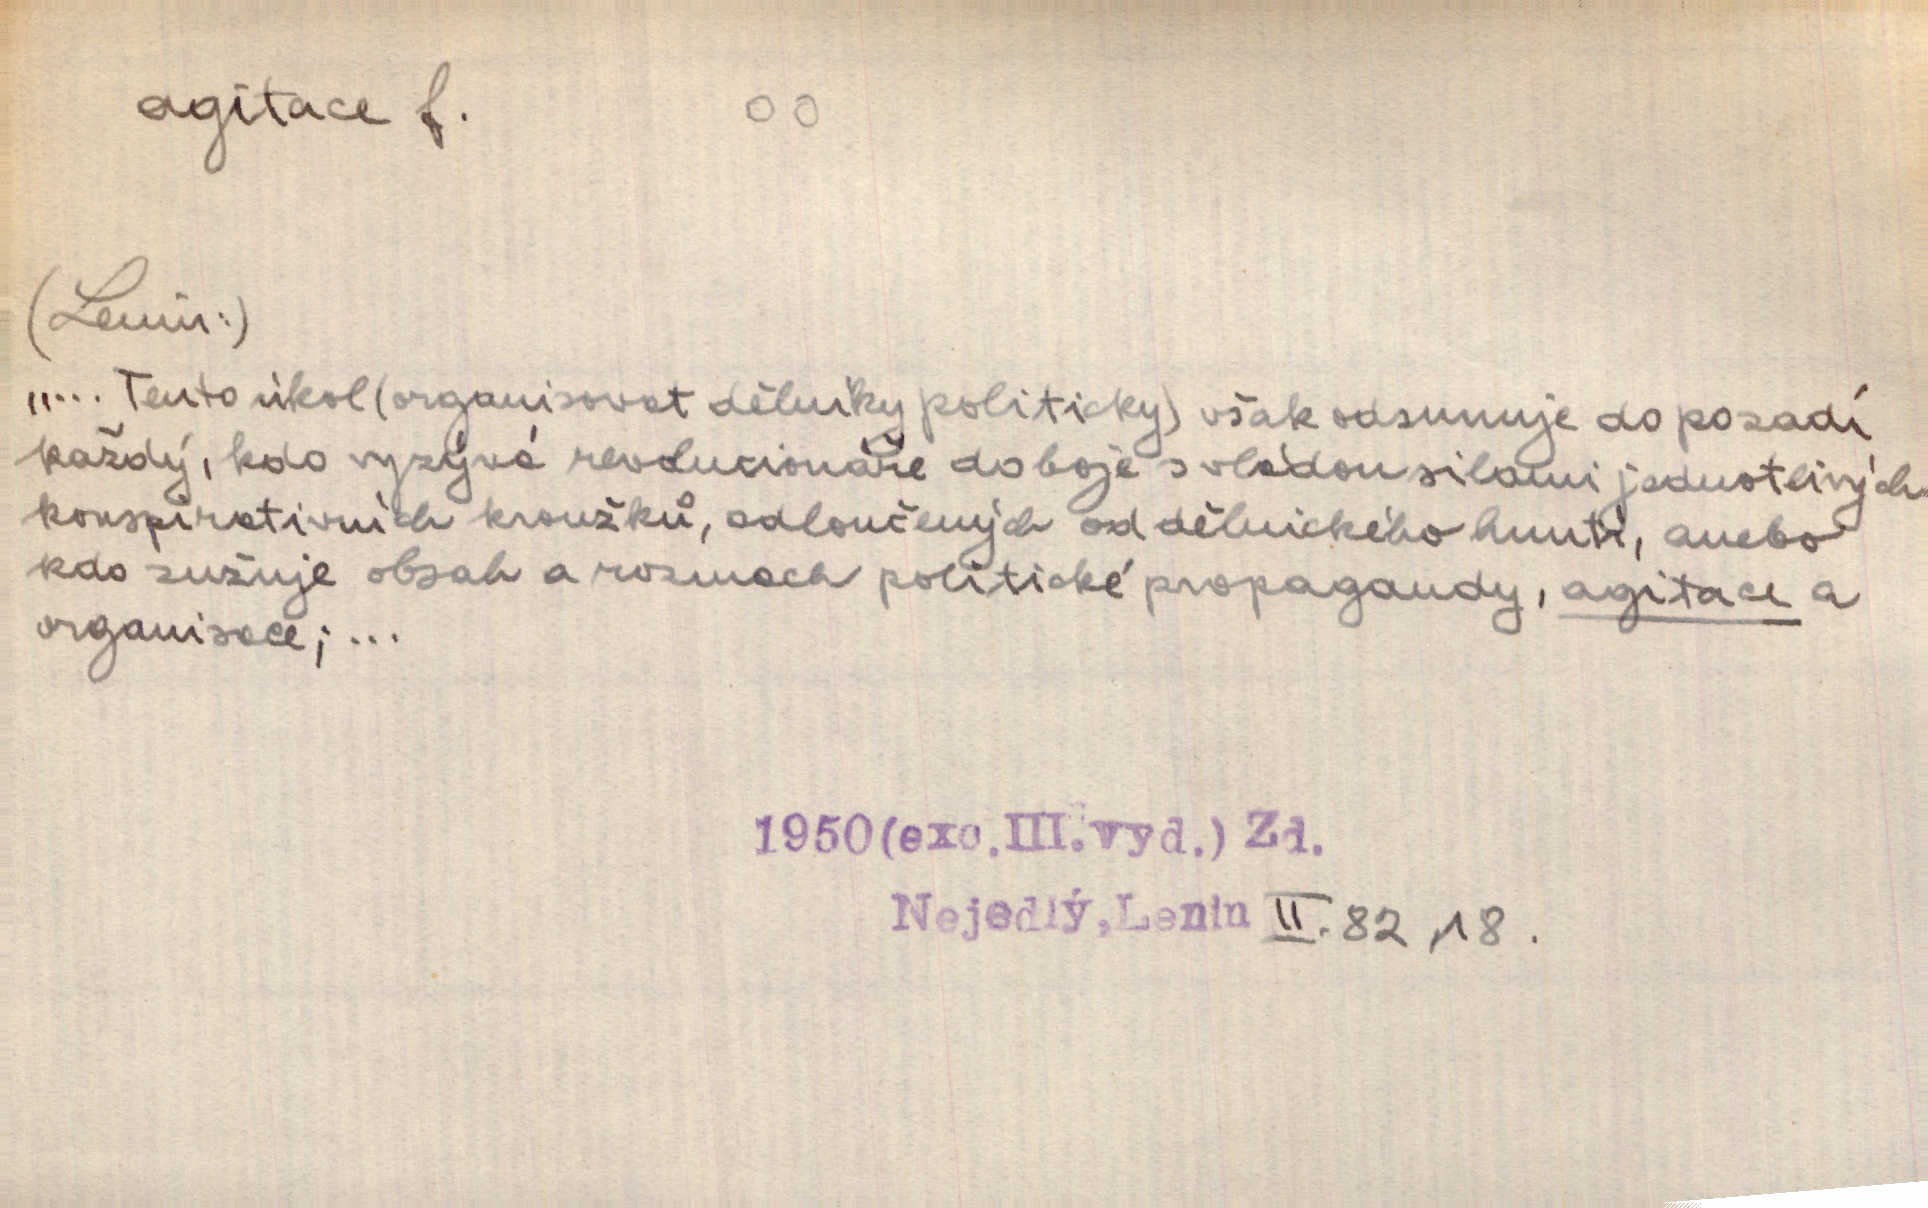 agitace f. oo
(Lenin:)
„... Tento úkol (organisovat dělníky politicky) však odsunuje do pozadí
každý, kdo vyzývá revolucionáře do boje s vládou silami jednotlivých
konspirativních kroužků, odloučených od dělnického hnutí, anebo
kdo zužuje obsah a rozmach politické propagandy, agitace a
organisace; ...
1950(exc.III.vyd.) Zd.
Nejedlý, Lenin II. 82, 18.